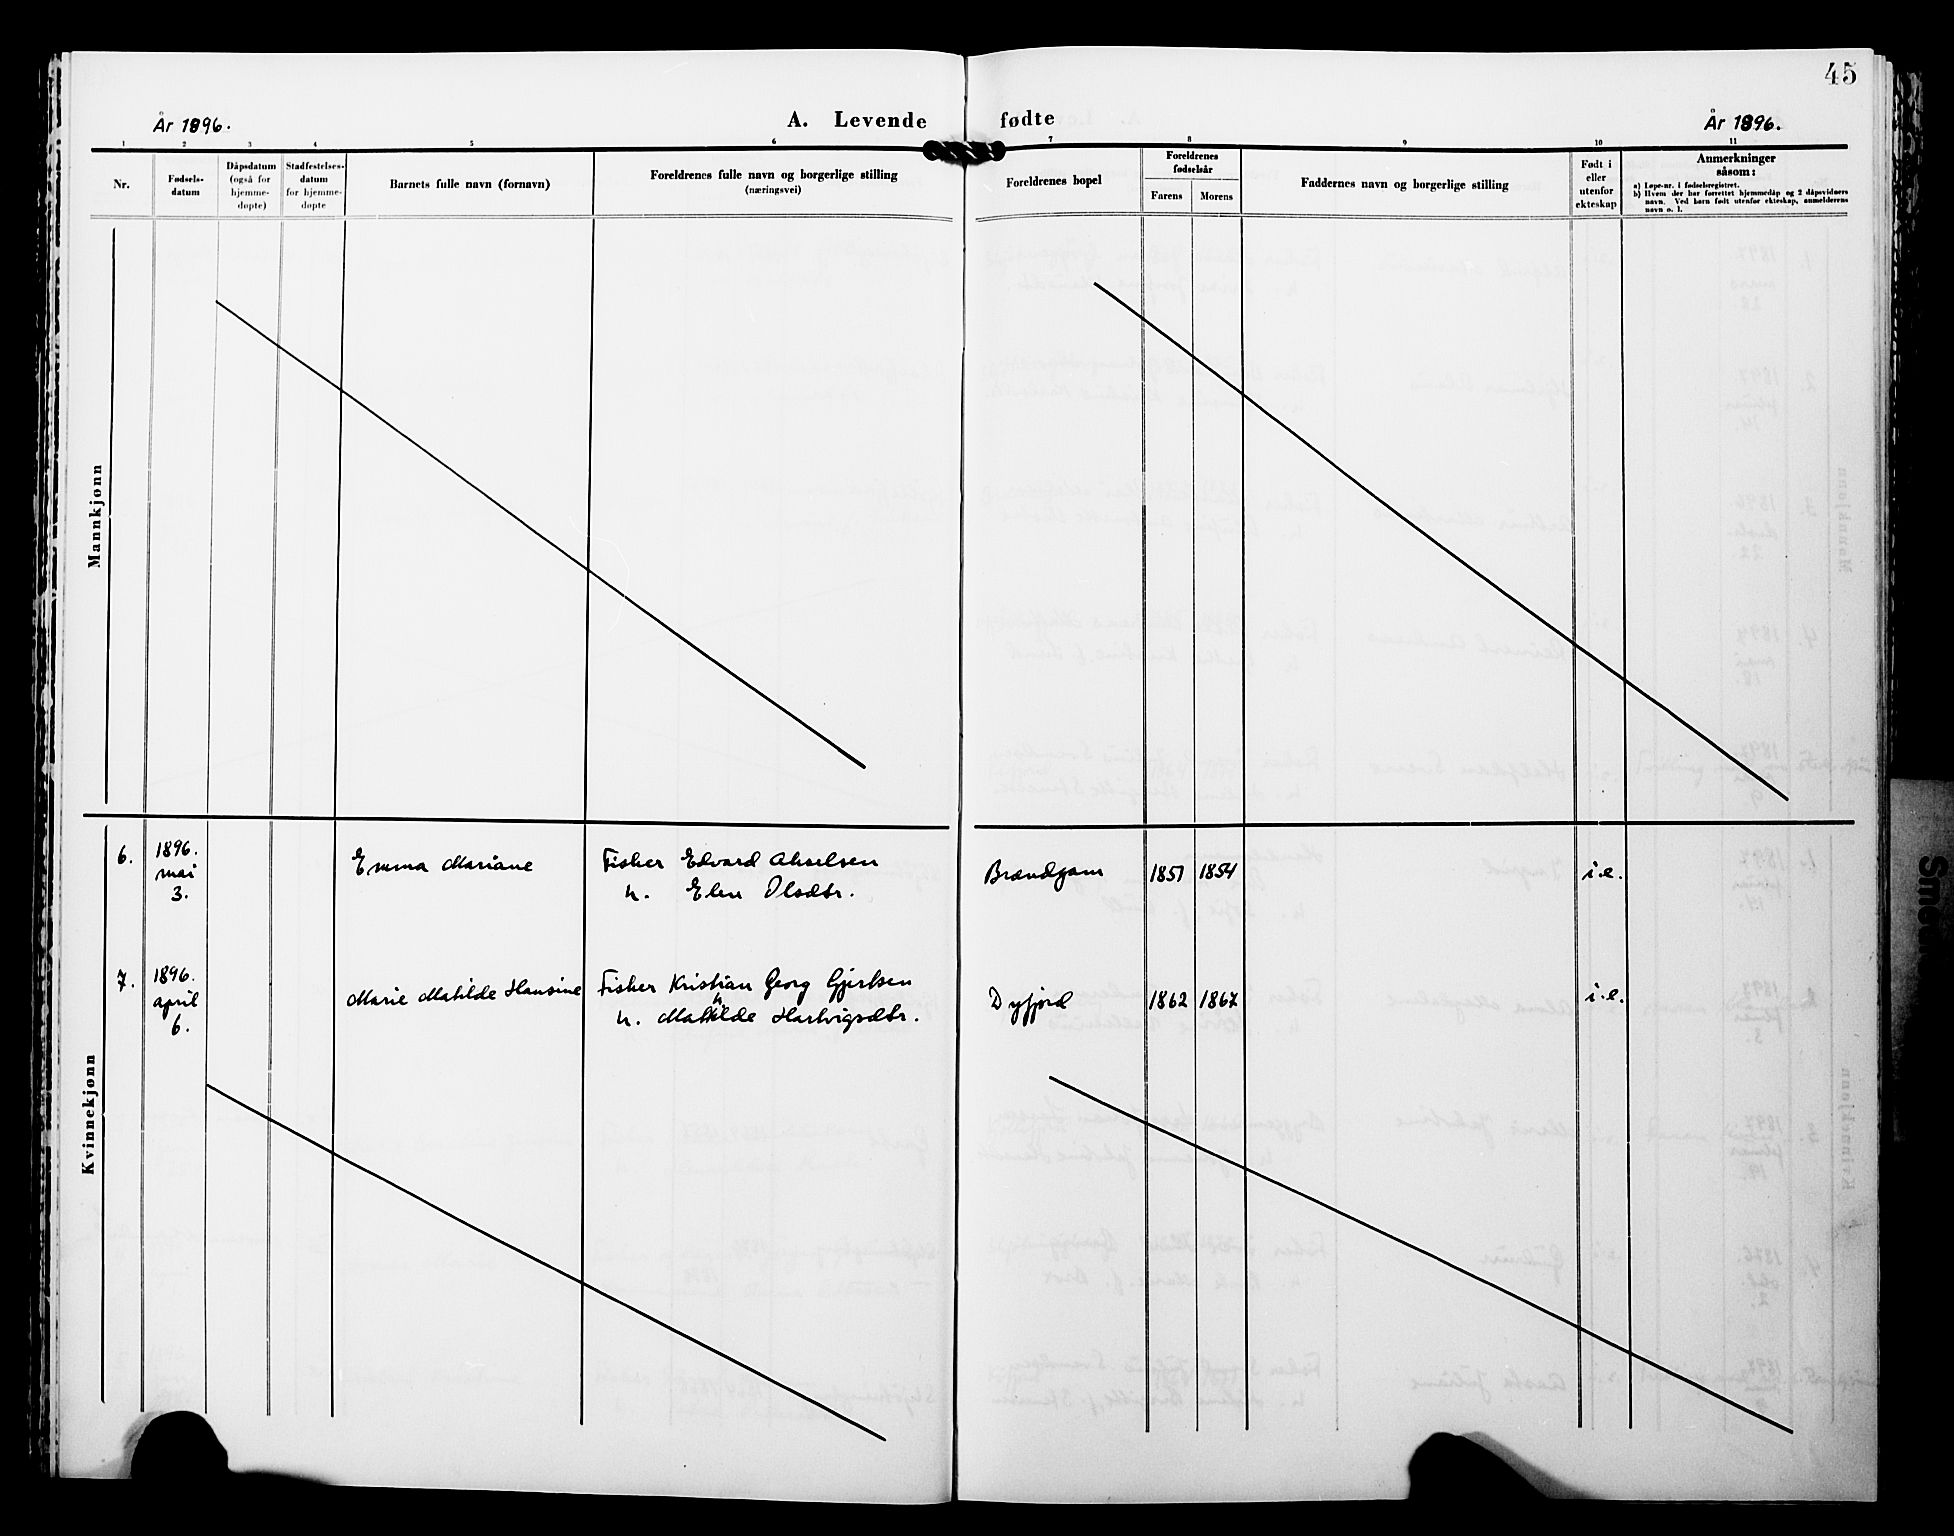 45
År 1896.
A. Levende fødte
År 1896.
1 2 3 4 5 6 7 8 9 10 11
Nr.
Fødsels-
datum
Dåpsdatum
(også for
hjemme-
døpte)
Stadfestelses-
datum
for hjemme-
døpte
Barnets fulle navn (fornavn)
Foreldrenes fulle navn og borgerlige stilling
(næringsvei)
Foreldrenes bopel
Foreldrenes
fødselsår
Farens Morens
Faddernes navn og borgerlige stilling
Født i
eller
utenfor
ekteskap
Anmerkninger
såsom:
a) Løpe-nr. i fødselsregistret.
b) Hvem der har forrettet hjemmedåp og 2 dåpsvidners
navn. Ved barn født utenfor ekteskap, anmelderens
navn o. l.
Mannkjønn
Kvinnekjønn
6.
1896.
mai
3.
Emma Mariane
Fisker Edvard Akselsen
h. Elen Olsdtr.
Brændgam
1851 1854
i.e.
7.
1896.
april
6.
Marie Mathilde Hansine
Fisker Kristian Georg Gjertsen
h. Mathilde Hartvigsdtr.
Dyfjord
1862 1867
i.e.